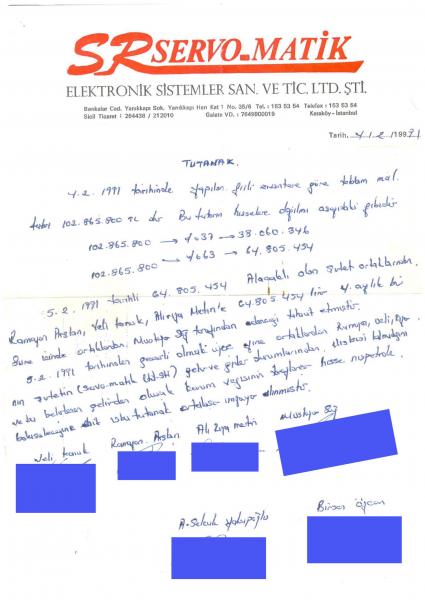 SR SERVO-MATİK
ELEKTRONİK SİSTEMLER SAN. VE TİC. LTD. ŞTİ.
Bankalar Cad. Yanıkkapı Sok. Yanıkkapı Han Kat 1 No. 35/6 Tel. : 153 53 54 Telefax : 153 53 54
Sicil Ticaret : 264438 / 212010 Galata VD. : 7649800019 Karaköy - İstanbul
Tarih, 4/2/1991
TUTANAK.
4.2.1991 tarihinde yapılan fiili envantere göre toplam mal
tutarı 102.865.800 TL dir Bu tutarın hisselere dağılımı aşağıdaki gibidir
102.865.800 → %37 → 38.060.346
102.865.800 → %63 → 64.805.454
5.2.1991 tarihli 64.805.454 Alacaklı olan şirket ortaklarından
Ramazan Arslan, Veli tanuk, Ali rıza Metin'e 64.805.454 lira 4 aylık bir
Süre içinde ortaklardan tarafından ödeneceği taahhüt etmiştir.
5.2.1991 tarihinden geçerli olmak üzere ortaklardan Ramazan, Veli,
nın şirketin (Servo-matik Ltd. Şti) gelir ve gider durumlarından,
ve bu belirtilen gelirden olacak kurum vergisinin hisse
dair iş bu tutanak ortakça imzaya alınmıştır.
Veli tanuk Ramazan Arslan Ali Rıza metin
A. Selcuk Yakupoğlu Birsen Özcan